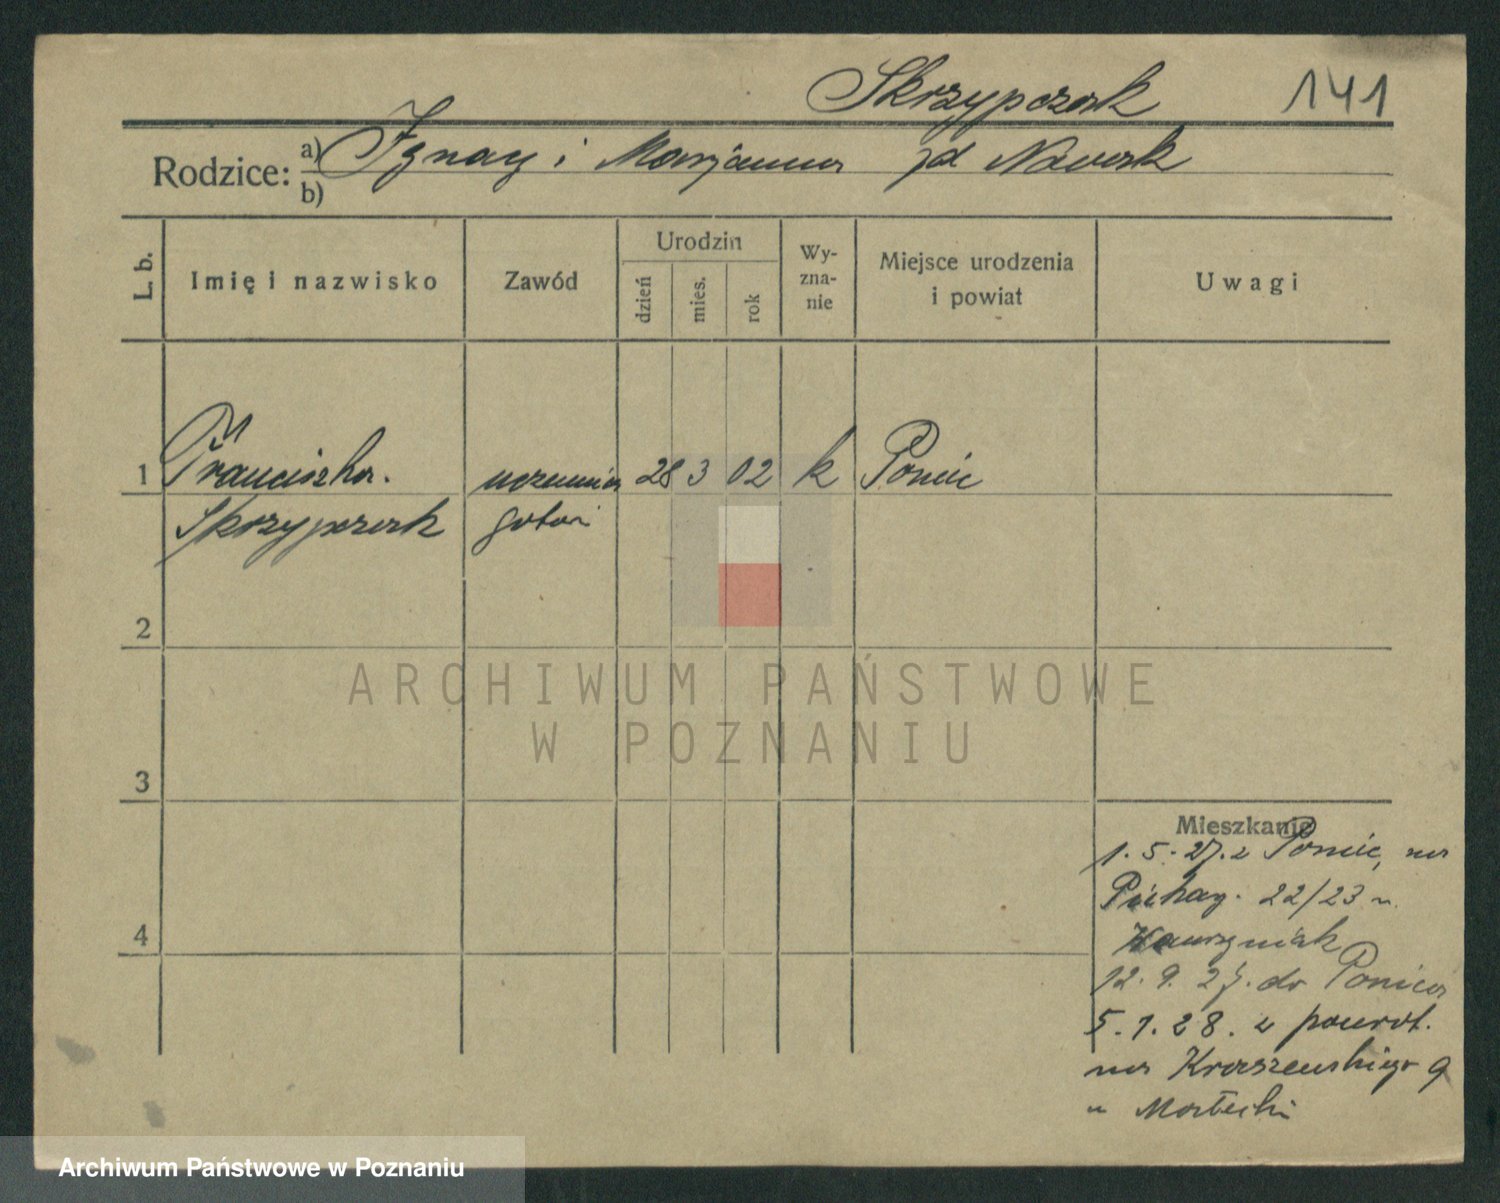 Skrzypczak 141
Rodzice: a) Ignacy i Marjanna zd Nawak
b)
L. b.
Imię i nazwisko
Zawód
Urodzin
dzień
mies.
rok
Wy-
zna-
nie
Miejsce urodzenia
i powiat
Uwagi
1 Franciszka uczennica 28 3 02 k Poniec
Skrzypczak gotow
2
3
4
ARCHIWUM PAŃSTWOWE
W POZNANIU
Mieszkanie
1. 5. 27. z Poniec, na
22/23 u.
12. 9. 27. do Ponieca
5. 1. 28. z powrot.
na Kraszewskiego 9
u Małecki
Archiwum Państwowe w Poznaniu